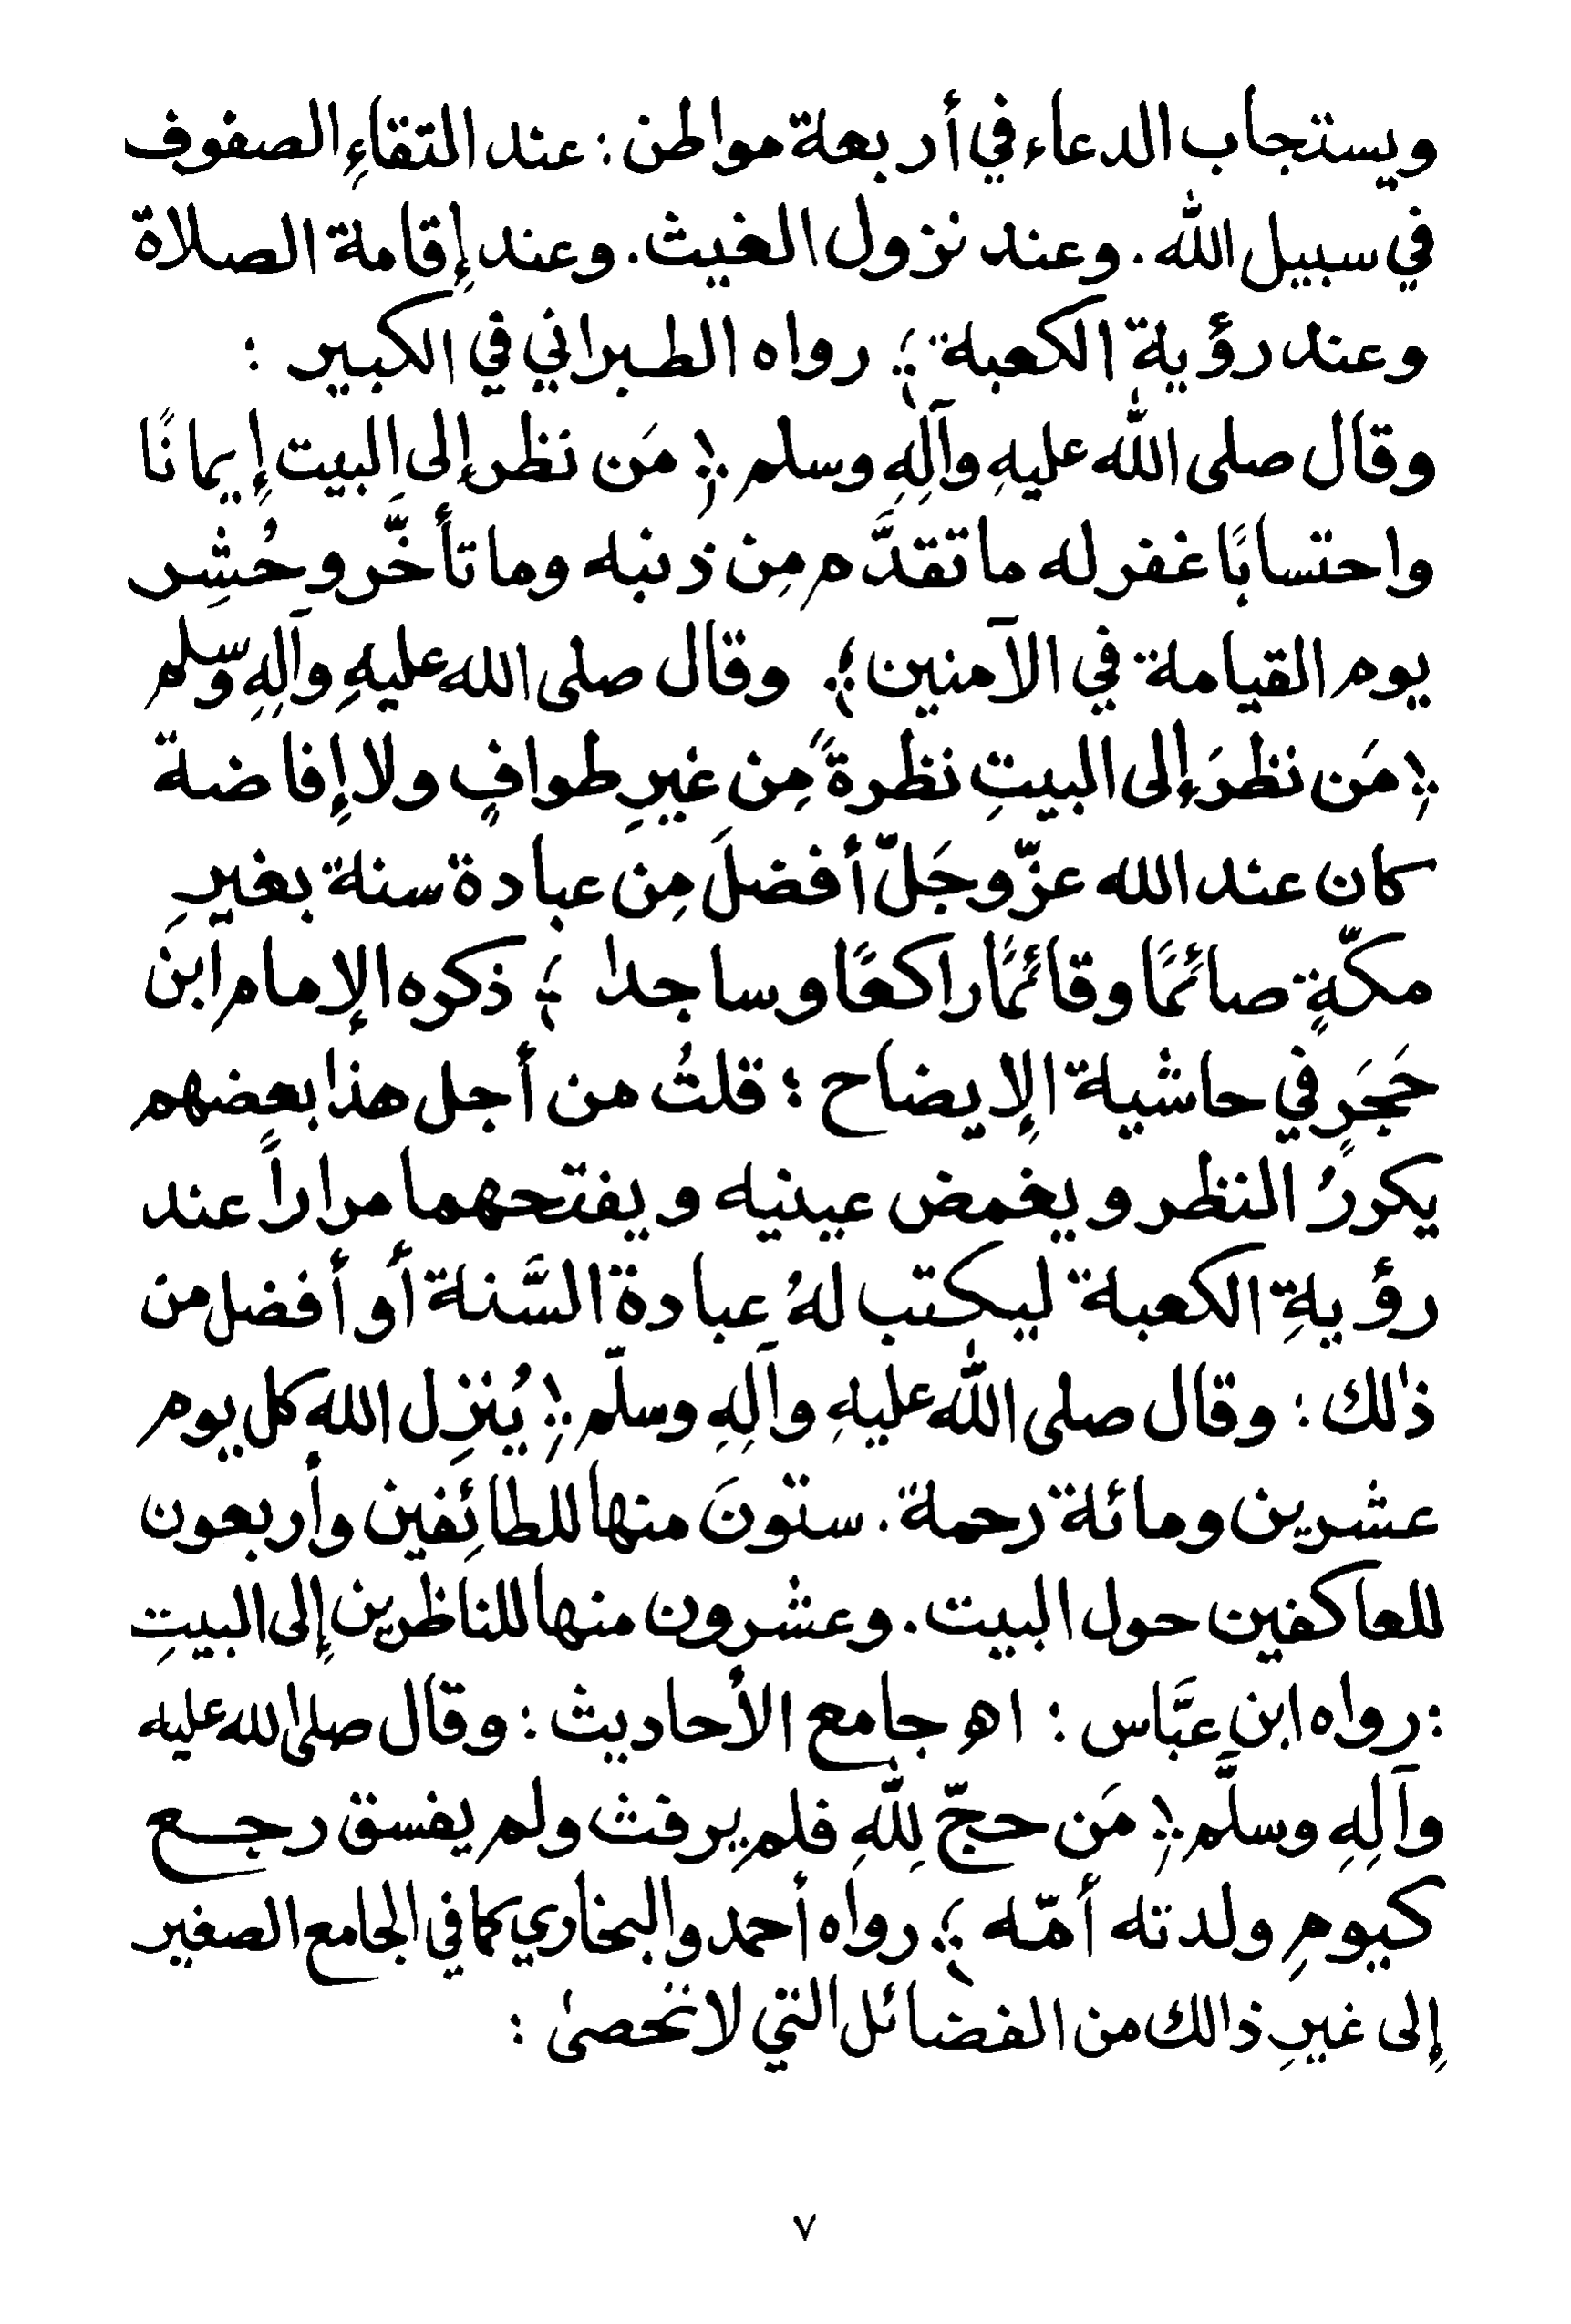 ويستجاب الدعاء في أربعة مواطن : عند التقاءِ الصفوف
في سبيل الله . وعند نزول الغيث . وعند إقامة الصلاة
وعند رؤية الكعبة ﴾ رواه الطبراني في الكبير :
وقال صلى الله عليهِ وآلِهِ وسلم ﴿ مَن نظر إلى البيت إِيمانًا
واحتسابًا غفر له ما تقدَّم مِن ذنبه وما تأخَّر وحُشِر
يوم القيامة في الآمنين ﴾ وقال صلى الله عليهِ وآلِهِ وسلم
﴿ مَن نظرَ إلى البيتِ نظرةً مِن غيرِ طوافٍ ولا إفاضة
كان عند الله عزّ وجَلّ أفضلَ مِن عبادة سنة بغيرِ
مكّةٍ صائمًا وقائمًا راكعًا وساجدا ﴾ ذكره الإمام ابن
حَجَرٍ في حاشية الإيضاح ؛ قلتُ من أجل هذا بعضهم
يكررُ النظر ويغمض عينيه ويفتحهما مراراً عند
رؤيةِ الكعبة ليكتب لهُ عبادة السَّنة أو أفضل من
ذالك : وقال صلى الله عليهِ وآلِهِ وسلّم ﴿ يُنزِل الله كل يوم
عشرين ومائة رحمة . ستونَ منها للطائِفين وأربعون
للعاكفين حول البيت . وعشرون منها للناظرين إلى البيتِ
: رواه ابن عبَّاس : اهـ جامع الأحاديث : وقال صلى الله عليه
وآلِهِ وسلَّم ﴿ مَن حجّ لِلّهِ فلم يرفث ولم يفسق رجع
كيومِ ولدته أمّه ﴾ رواه أحمد والبخاري كما في الجامع الصغير
إلى غيرِ ذالك من الفضائل التي لا تحصىٰ :
٧